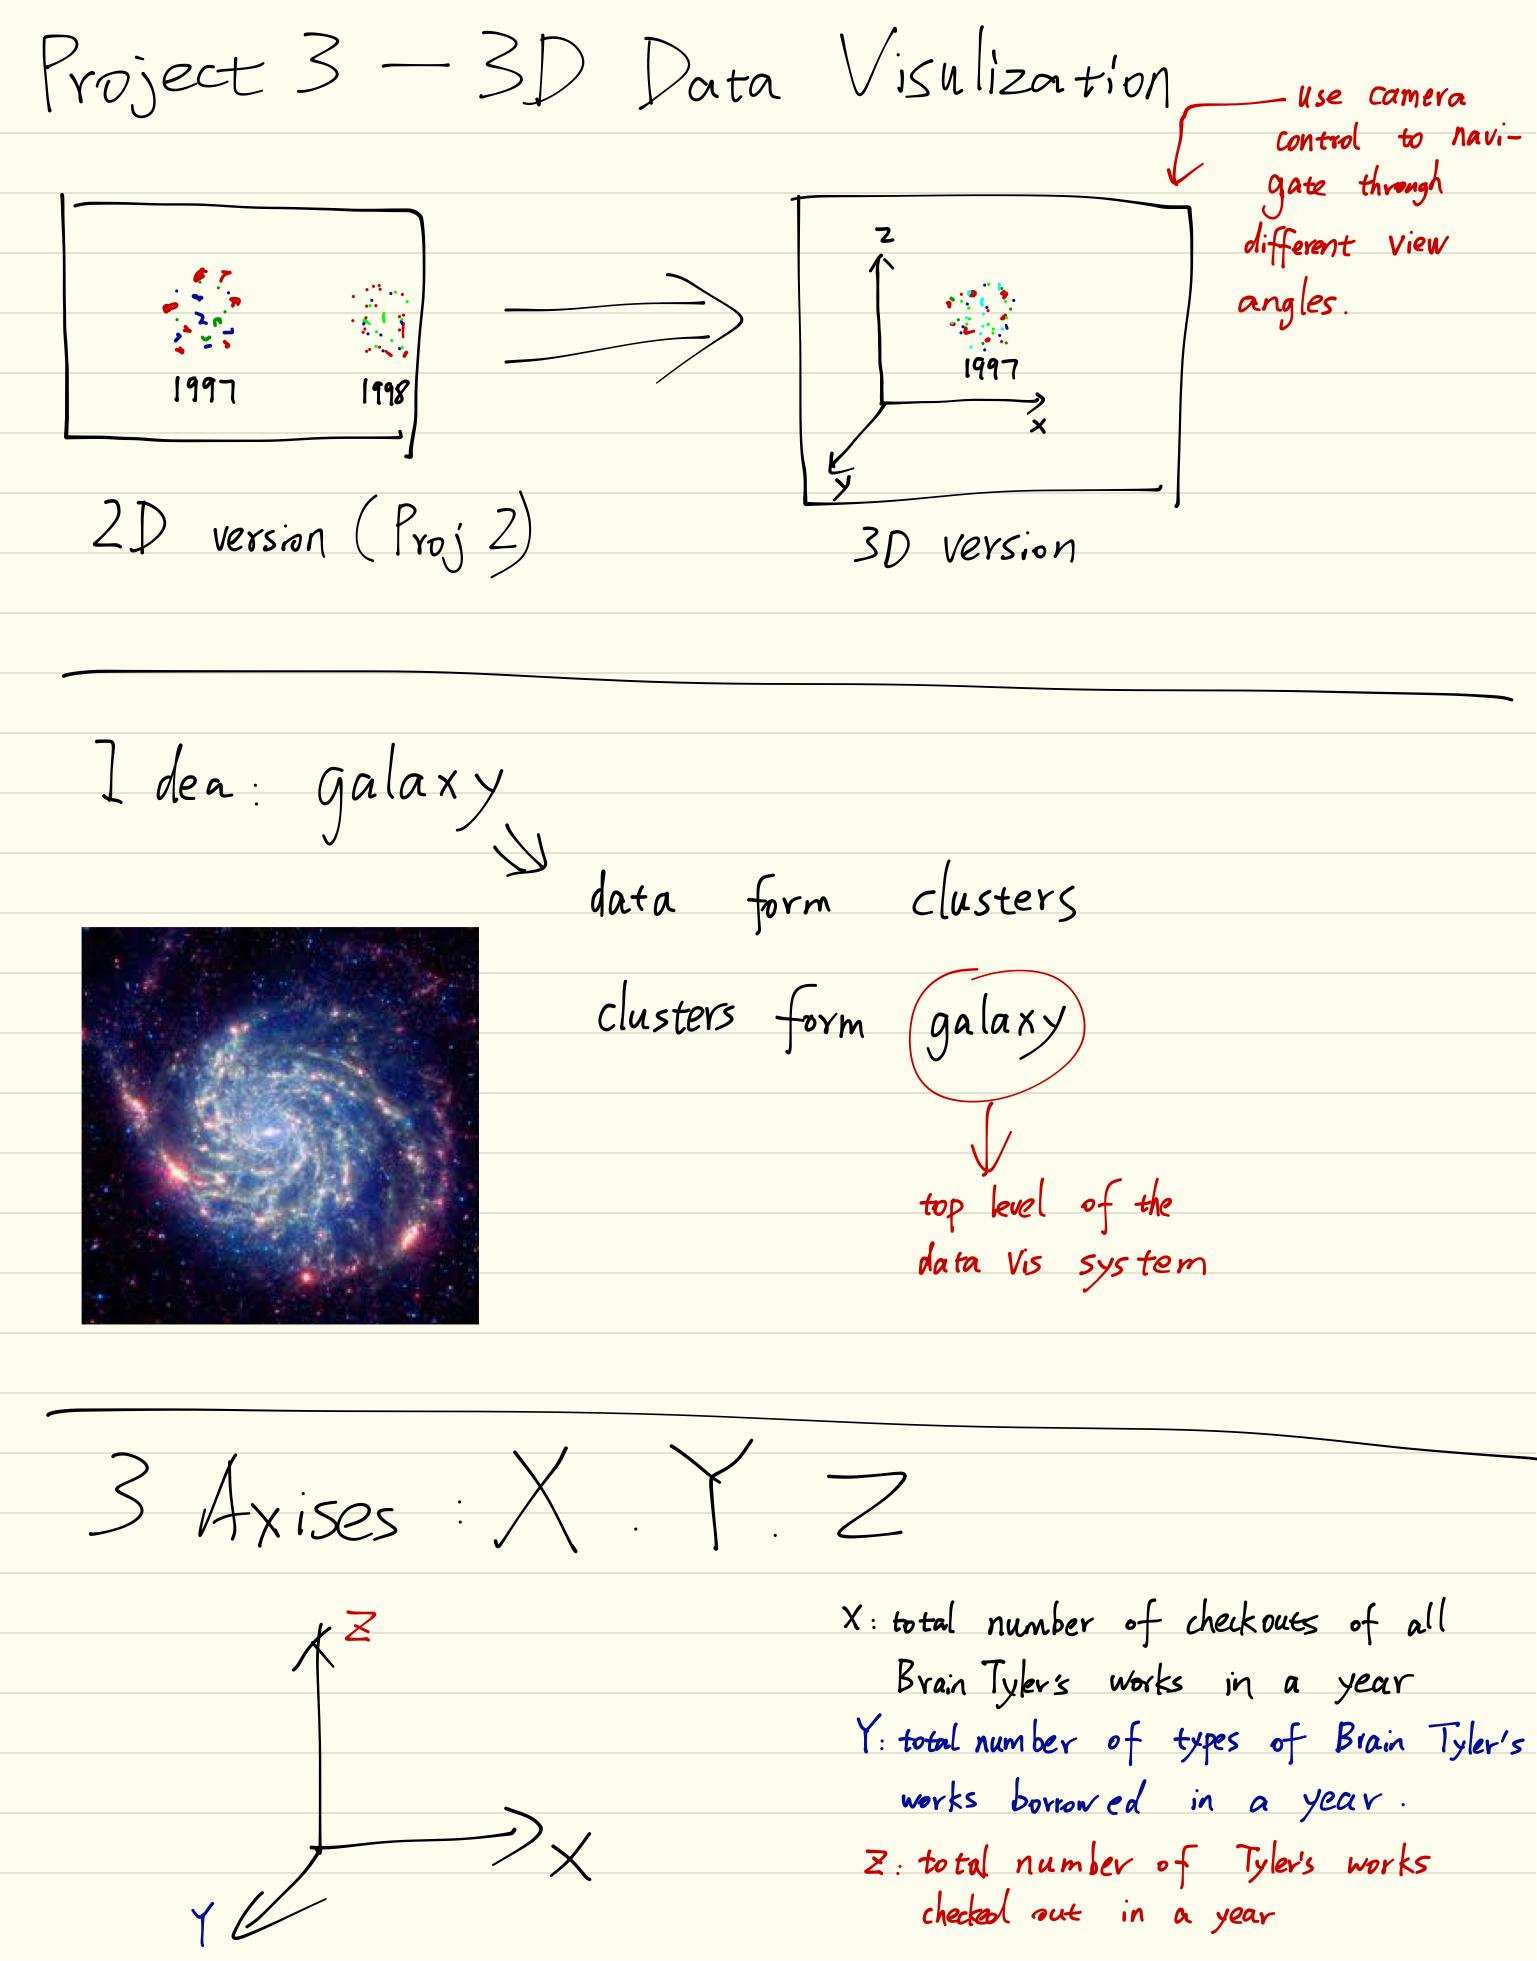 Project 3 — 3D Data Visulization
use camera
control to navi-
gate through
different view
angles.
Z
X
Y
1997
1998
1997
2D version (Proj 2)
3D version
Idea: galaxy
data form clusters
clusters form galaxy
top level of the
data vis system
3 Axises: X. Y. Z
Z
X
Y
X: total number of checkouts of all
Brain Tyler's works in a year
Y: total number of types of Brain Tyler's
works borrowed in a year.
Z: total number of Tyler's works
checked out in a year